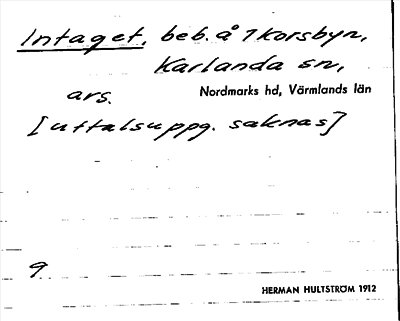 Intaget, beb. å Tkorsbyn,
Karlanda sn,
ars. Nordmarks hd, Värmlands län
[uttalsuppg. saknas]
9
HERMAN HULTSTRÖM 1912